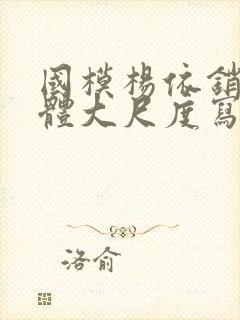 國模楊依銷
體大尺度寫
洛俞